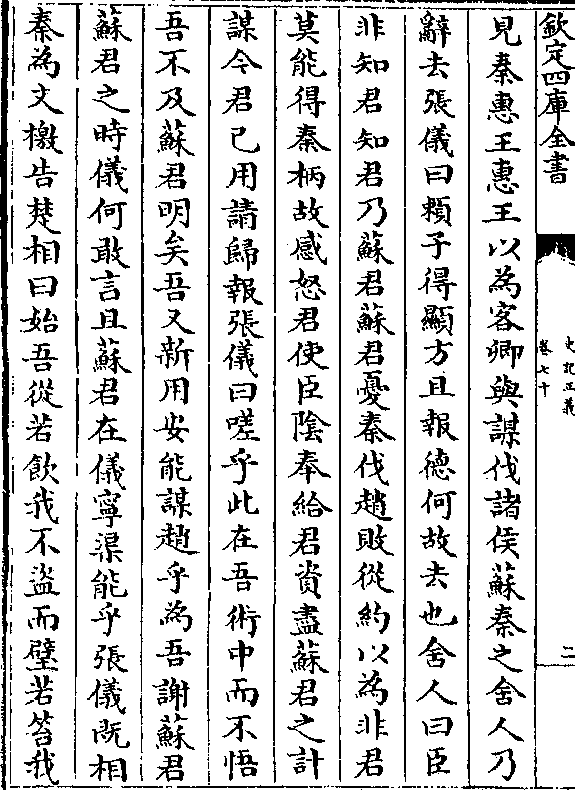 欽定四庫全書
史記正義
卷七十
二
見秦惠王惠王以為客卿與謀伐諸侯蘇秦之舍人乃
辭去張儀曰頼子得顯方且報德何故去也舍人曰臣
非知君知君乃蘇君蘇君憂秦伐趙敗從約以為非君
莫能得秦柄故感怒君使臣陰奉給君資盡蘇君之計
謀今君已用請歸報張儀曰嗟乎此在吾術中而不悟
吾不及蘇君明矣吾又新用安能謀趙乎為吾謝蘇君
蘇君之時儀何敢言且蘇君在儀寧渠能乎張儀既相
秦為文檄告楚相曰始吾從若飲我不盜而璧若笞我